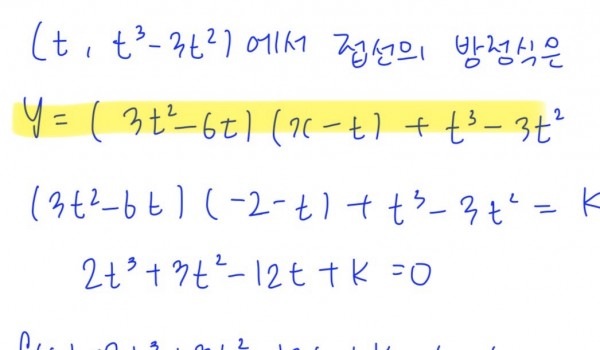 (t, t³-3t²)에서 접선의 방정식은
y = (3t²-6t)(x-t) + t³-3t²
(3t²-6t)(-2-t) + t³-3t² = K
2t³+3t²-12t+K=0